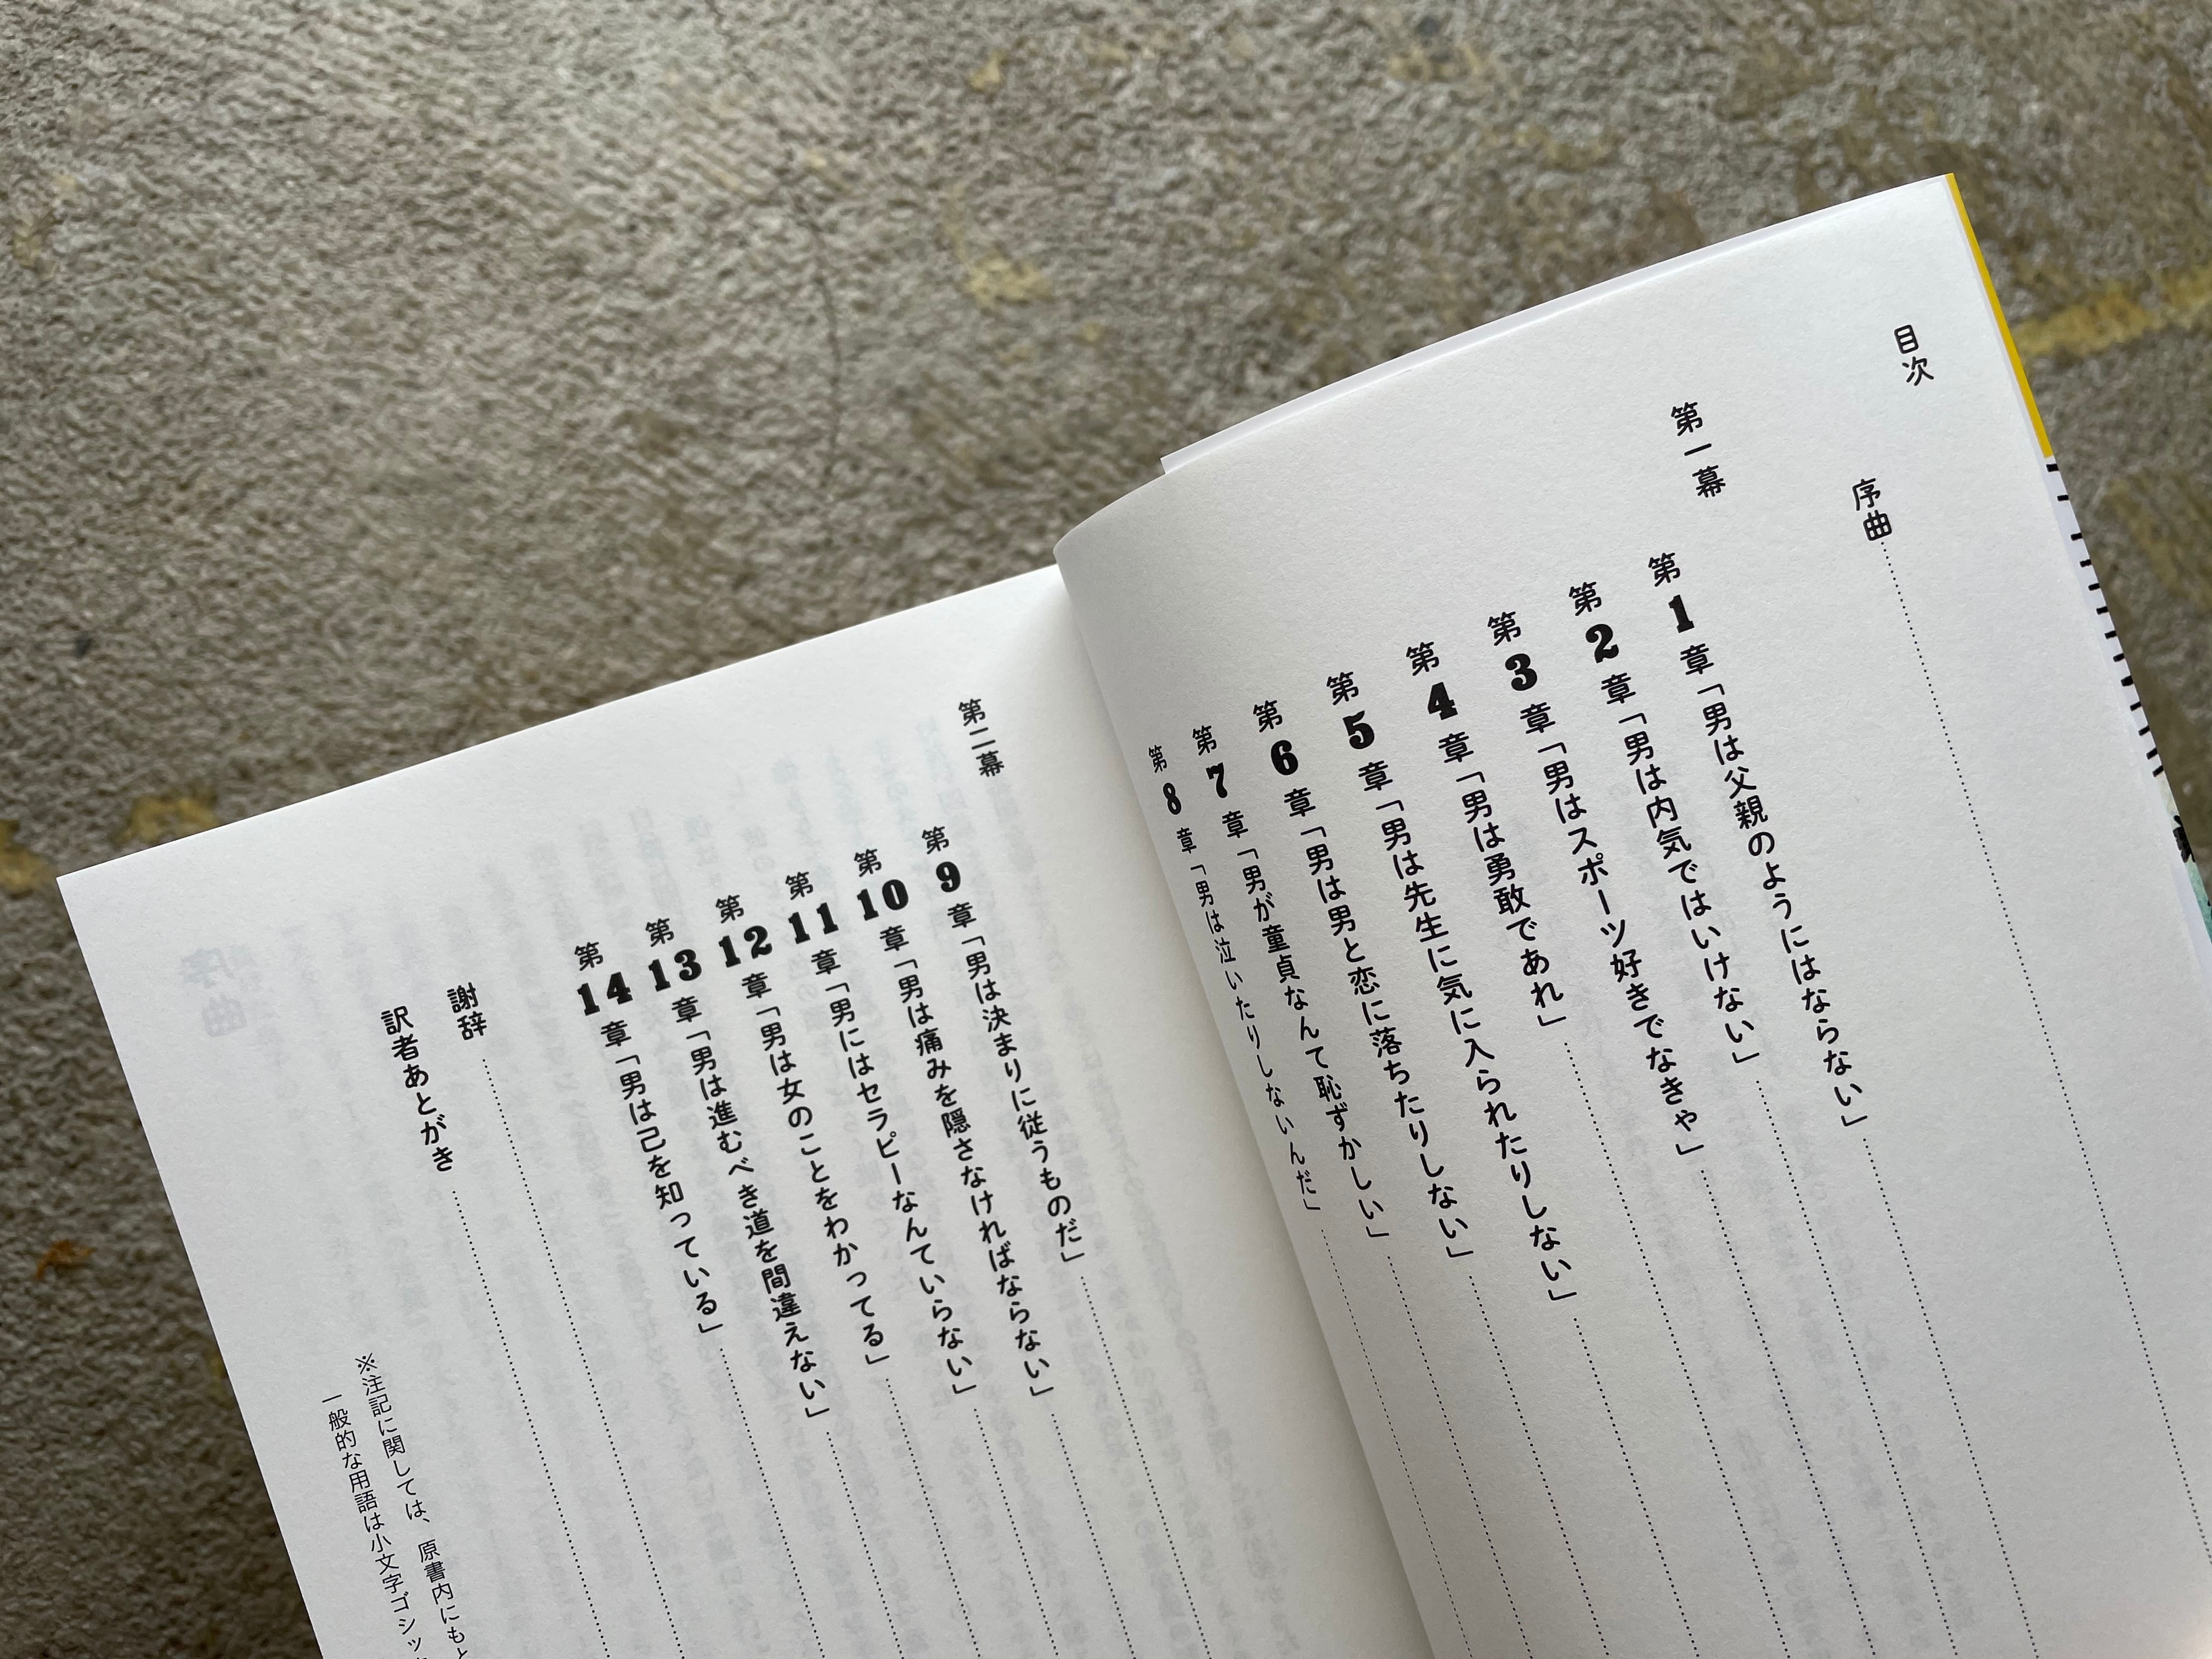 目次
序曲
第一幕
第1章「男は父親のようにはならない」
第2章「男は内気ではいけない」
第3章「男はスポーツ好きでなきゃ」
第4章「男は勇敢であれ」
第5章「男は先生に気に入られたりしない」
第6章「男は男と恋に落ちたりしない」
第7章「男が童貞なんて恥ずかしい」
第8章「男は泣いたりしないんだ」
第二幕
第9章「男は決まりに従うものだ」
第10章「男は痛みを隠さなければならない」
第11章「男にはセラピーなんていらない」
第12章「男は女のことをわかってる」
第13章「男は進むべき道を間違えない」
第14章「男は己を知っている」
謝辞
訳者あとがき
※注記に関しては、原書内にもと
一般的な用語は小文字ゴシッ